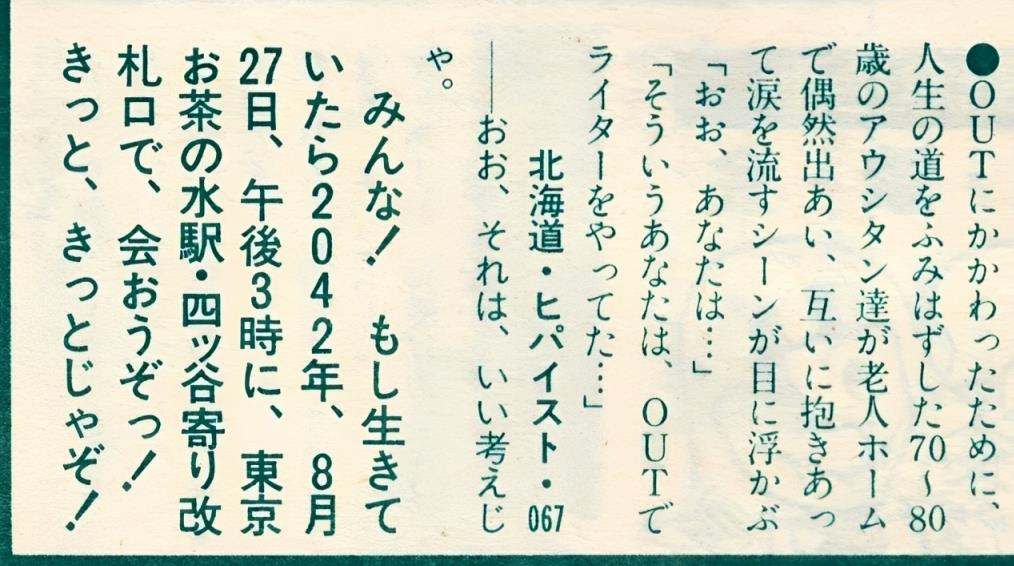 ●OUTにかかわったために、
人生の道をふみはずした70〜80
歳のアウシタン達が老人ホーム
で偶然出あい、互いに抱きあっ
て涙を流すシーンが目に浮かぶ
「おお、あなたは…」
「そういうあなたは、OUTで
ライターをやってた…」
北海道・ヒパイスト・067
──おお、それは、いい考えじ
や。
みんな！　もし生きて
いたら2042年、8月
27日、午後3時に、東京
お茶の水駅・四ッ谷寄り改
札口で、会おうぞっ！
きっと、きっとじゃぞ！